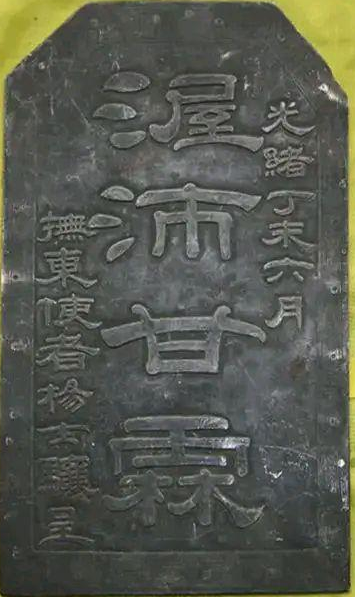 光緒丁未六月
渥沛甘霖
撫東使者楊士驤立